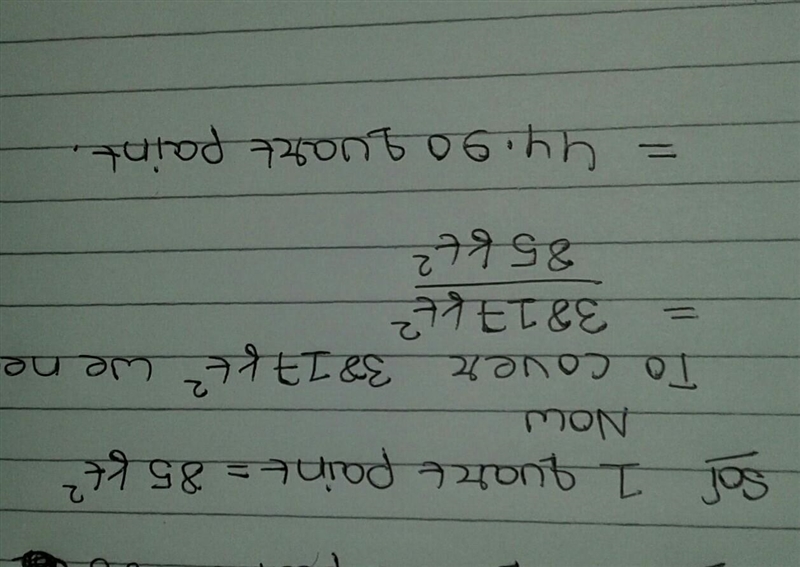 Sol 1 quart paint = 85 ft²
Now
To cover 3817 ft² we ne
= 3817 ft²
85 ft²
= 44.90 quart paint.